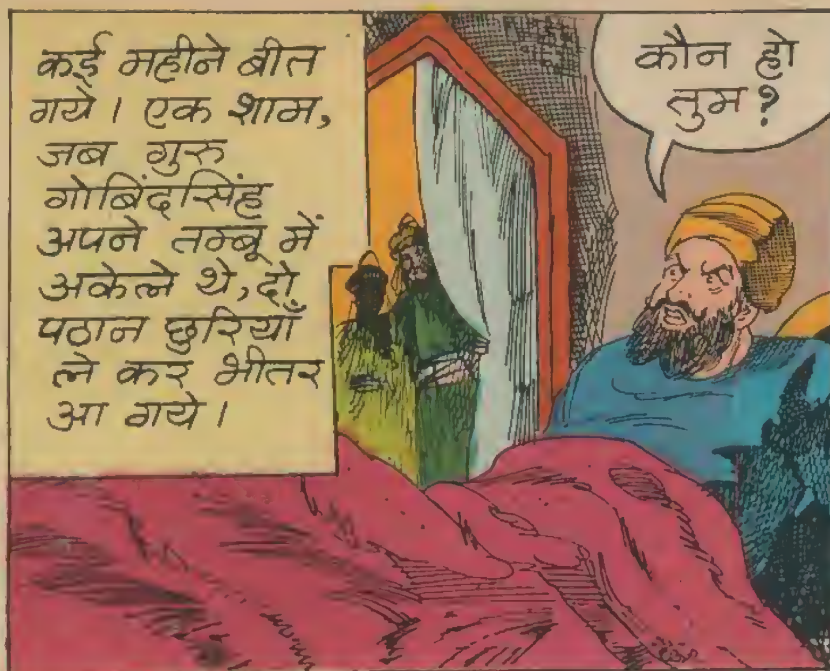 कई महीने बीत
गये। एक शाम,
जब गुरु
गोबिंदसिंह
अपने तम्बू में
अकेले थे, दो
पठान छुरियाँ
ले कर भीतर
आ गये।
कौन हो
तुम?